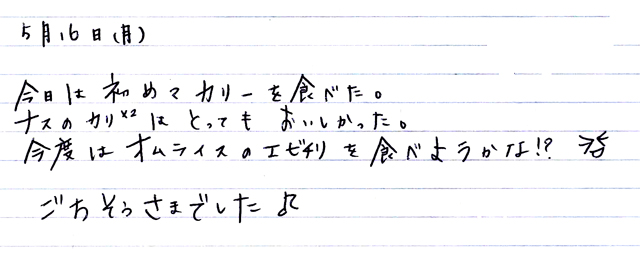 5月16日(月)
今日は初めてカリーを食べた。
ナスのカリ×2はとってもおいしかった。
今度はオムライスのエビチリを食べようかな!?
ごちそうさまでした♫